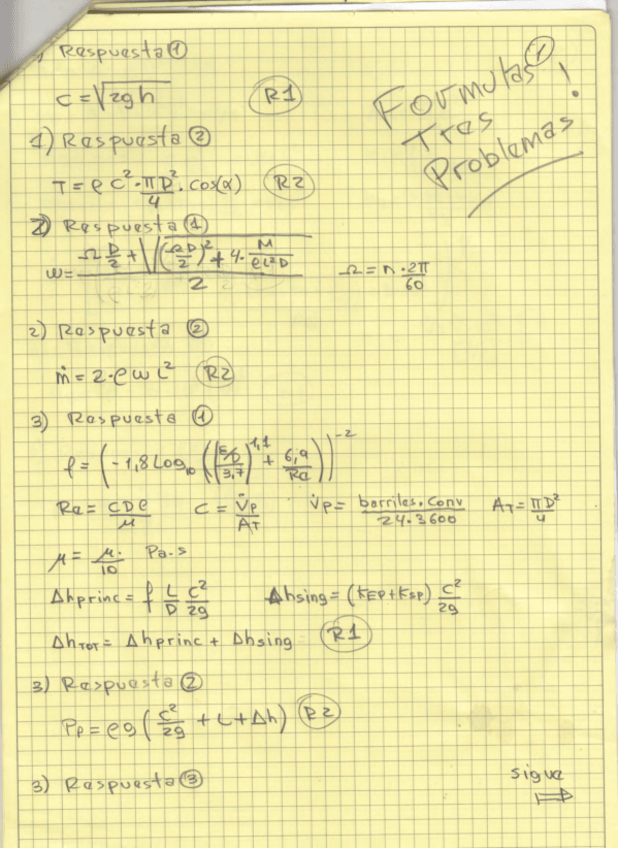 ) Respuesta ①
C = √2gh R1
Formulas ①
Tres !
Problemas
1) Respuesta ②
T = ρ C² · πD²/4 · cos(α) R2
2) Respuesta ①
w = (Ω D/2 + √((ΩD/2)² + 4 · M/(ρL²D)))/2 Ω = n · 2π/60
2) Respuesta ②
ṁ = 2 · ρ w L² R2
3) Respuesta ①
f = (-1,8 Log₁₀ (((ε/D)/3,7)^1,11 + 6,9/Re))^-2
Re = CDρ/μ C = V̇p/AT V̇p = barriles.Conv/24.3600 AT = πD²/4
μ = μ·/10 Pa.s
Δhprinc = f L/D C²/2g Δhsing = (KEP + KSP) C²/2g
ΔhTOT = Δhprinc + Δhsing R1
3) Respuesta ②
Pp = ρg (C²/2g + L + Δh) R2
3) Respuesta ③
sigue
⇒